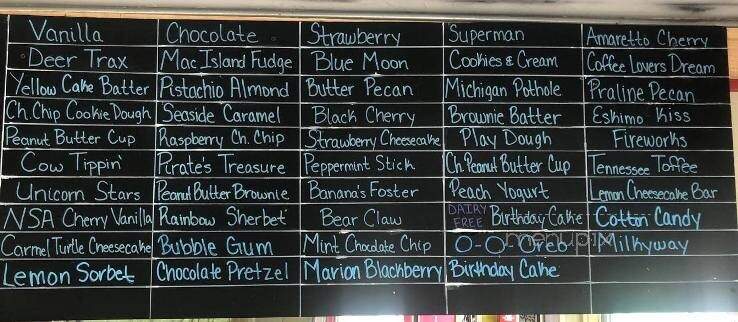 Vanilla
Chocolate
Strawberry
Superman
Amaretto Cherry
Deer Trax
Mac Island Fudge
Blue Moon
Cookies & Cream
Coffee Lovers Dream
Yellow Cake Batter
Pistachio Almond
Butter Pecan
Michigan Pothole
Praline Pecan
Ch. Chip Cookie Dough
Seaside Caramel
Black Cherry
Brownie Batter
Eskimo Kiss
Peanut Butter Cup
Raspberry Ch. Chip
Strawberry Cheesecake
Play Dough
Fireworks
Cow Tippin'
Pirate's Treasure
Peppermint Stick
Ch. Peanut Butter Cup
Tennessee Toffee
Unicorn Stars
Peanut Butter Brownie
Banana's Foster
Peach Yogurt
Lemon Cheesecake Bar
NSA Cherry Vanilla
Rainbow Sherbet
Bear Claw
DAIRY FREE Birthday Cake
Cotton Candy
Carmel Turtle Cheesecake
Bubble Gum
Mint Chocolate Chip
O-O-Oreo
Milkyway
Lemon Sorbet
Chocolate Pretzel
Marion Blackberry
Birthday Cake